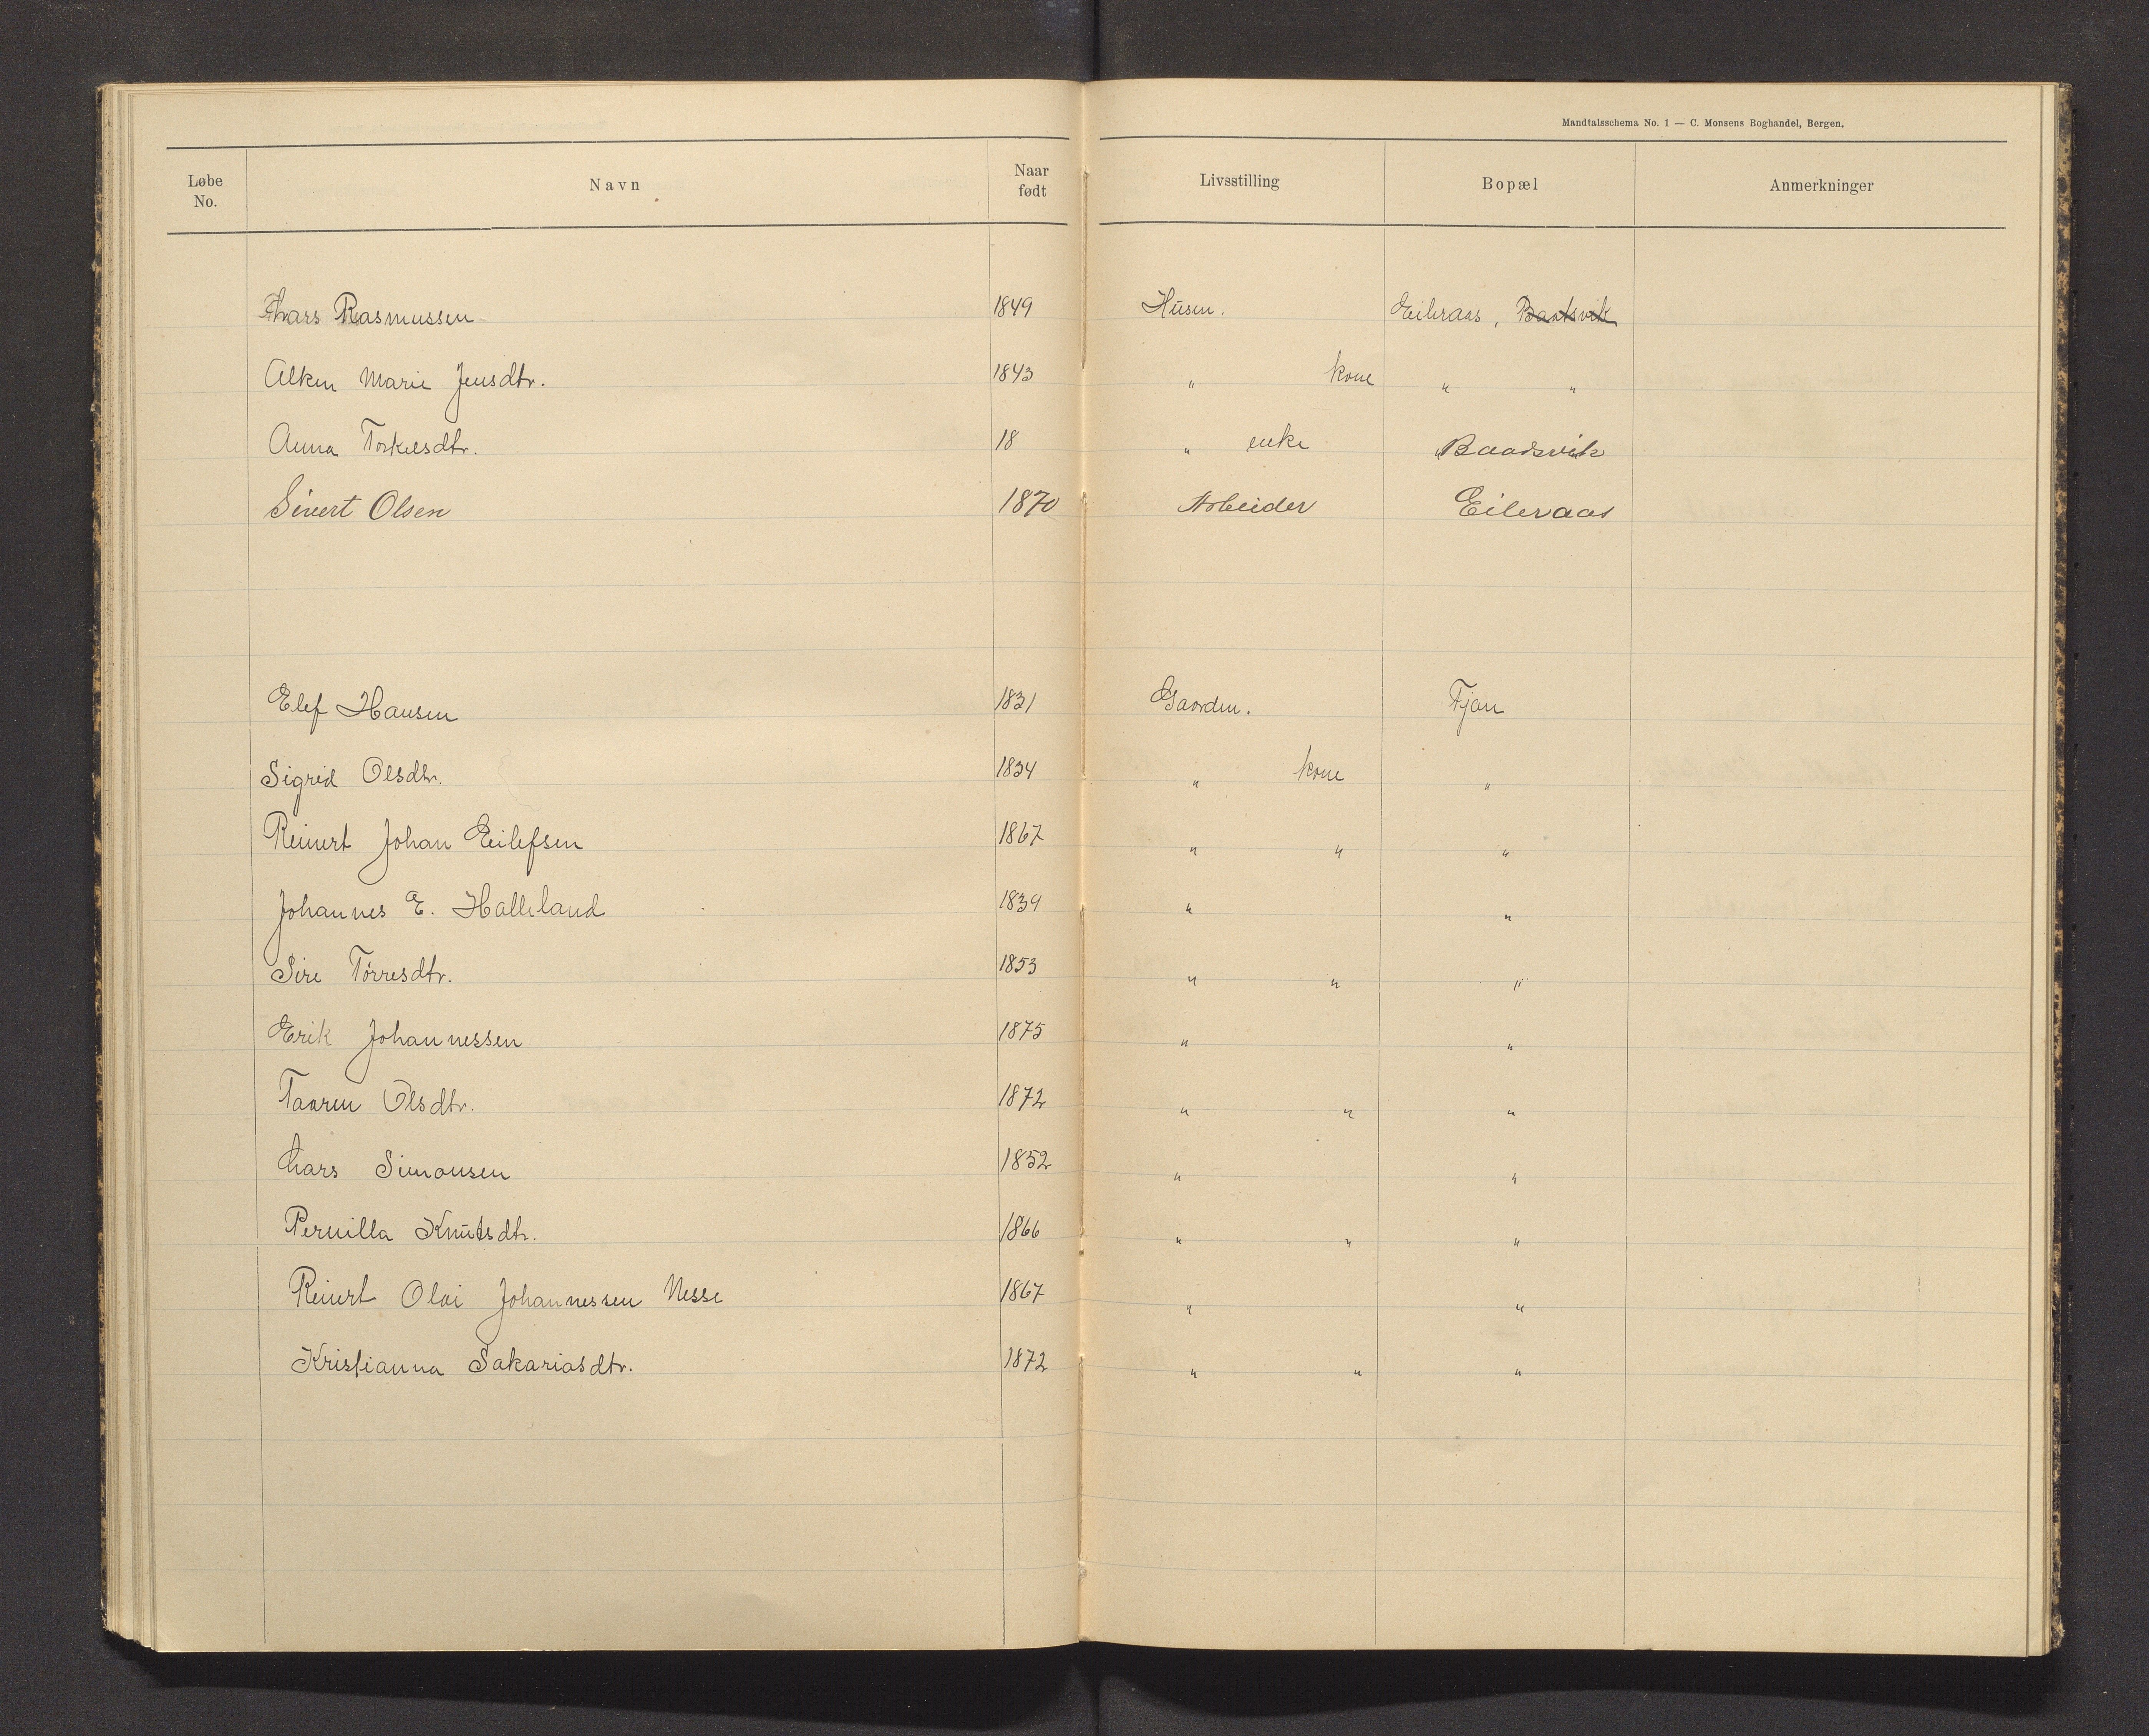 Mandtalsschema No. 1 — C. Monsens Boghandel, Bergen.
Løbe No. Navn Naar født Livsstilling Bopæl Anmerkninger
Lars Rasmussen 1849 Húsm. Eileraas, Baadsvik
Alken Marie Jensdtr. 1843 " kone " "
Anna Torkelsdtr. 18 " enke " Baadsvik
Sivert Olsen 1870 Arbeider Eileraas
Elef Hansen 1831 Gaardm. Fjon
Sigrid Olsdtr. 1834 " kone "
Reinert Johan Eilefsen 1867 " " "
Johannes E. Halleland 1839 " "
Sire Tórresdtr. 1853 " " "
Erik Johannessen 1875 " "
Taaren Olsdtr. 1872 " " "
Lars Simonsen 1852 " "
Pernilla Knútsdtr. 1866 " " "
Reinert Olai Johannessen Nesse 1867 " "
Kristianna Sakariasdtr. 1872 " " "